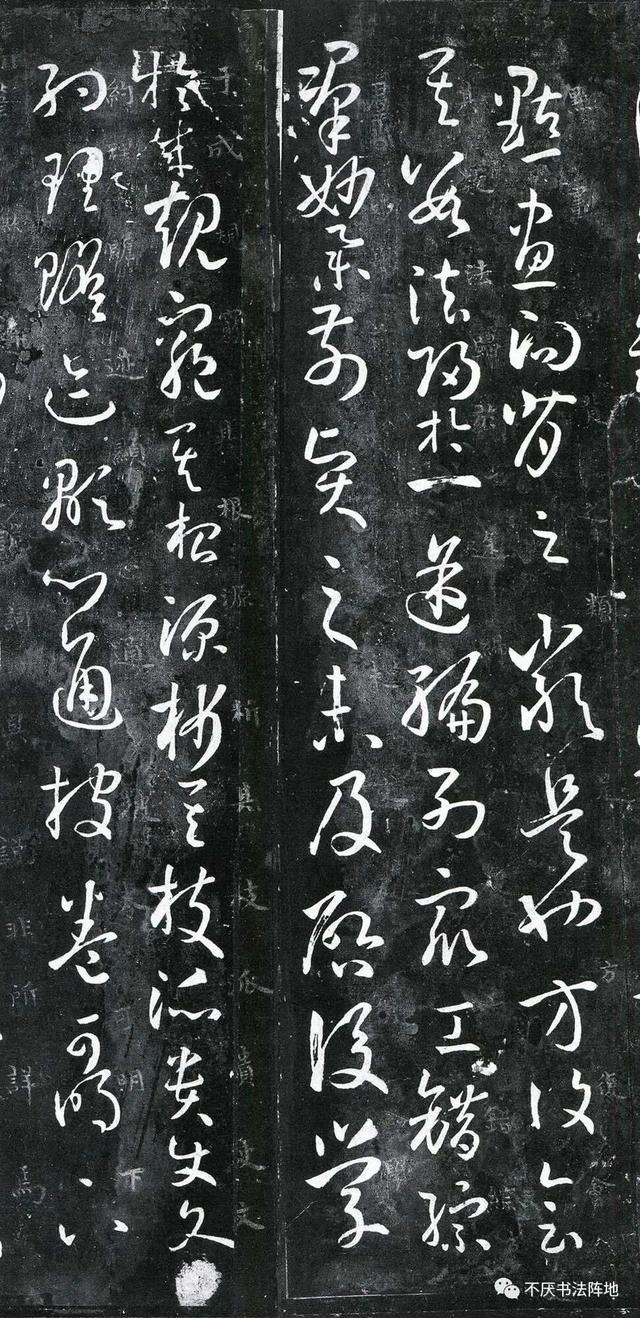 點畫向背之類是也方復會
其數法歸於一途編列衆工錯綜
羣妙舉前賢之未及啓後學
於成規窺其根源析其枝派貴使文
約理贍迹顯心通披卷可明下
不厌书法阵地